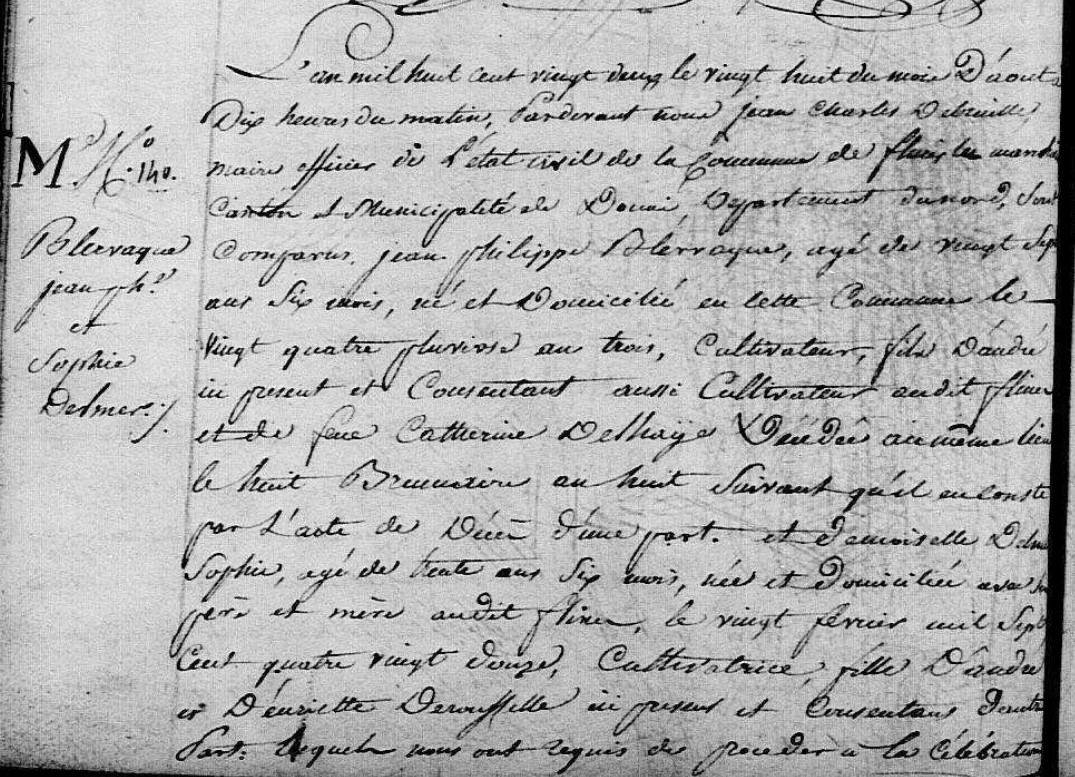 M N.° 140.
Blervaque
jean ph.
et
Sophie
Delmer./.
L'an mil huit cent vingt deux le vingt huit du mois D'aout a
Dix heures du matin, Pardevant nous jean Charles
maire officier de L'état civil de la Commune de flines les
Canton et Municipalité de Douai, Département du nord, Sont
Comparus, jean philippe Blervaque, agé de vingt Sept
ans Six mois, né et Domicilié en cette Commune le
Vingt quatre pluviose an trois, Cultivateur, fils D'andré
ici present et Consentant aussi Cultivateur audit flines
et de feue Catherine Delhaye Décédée au même lieu
le huit Brumaire an huit Suivant qu'il en conste
par L'acte de Décès d'une part. et demoiselle
Sophie, agé de trente ans Six mois, née et domiciliée avec
père et mère audit flines, le vingt fevrier mil Sept
Cent quatre vingt douze, Cultivatrice, fille D'andré
et D'énriette Derousselle ici present et Consentans d'autre
Part. Lesquels nous ont requis de proceder a la Célébration